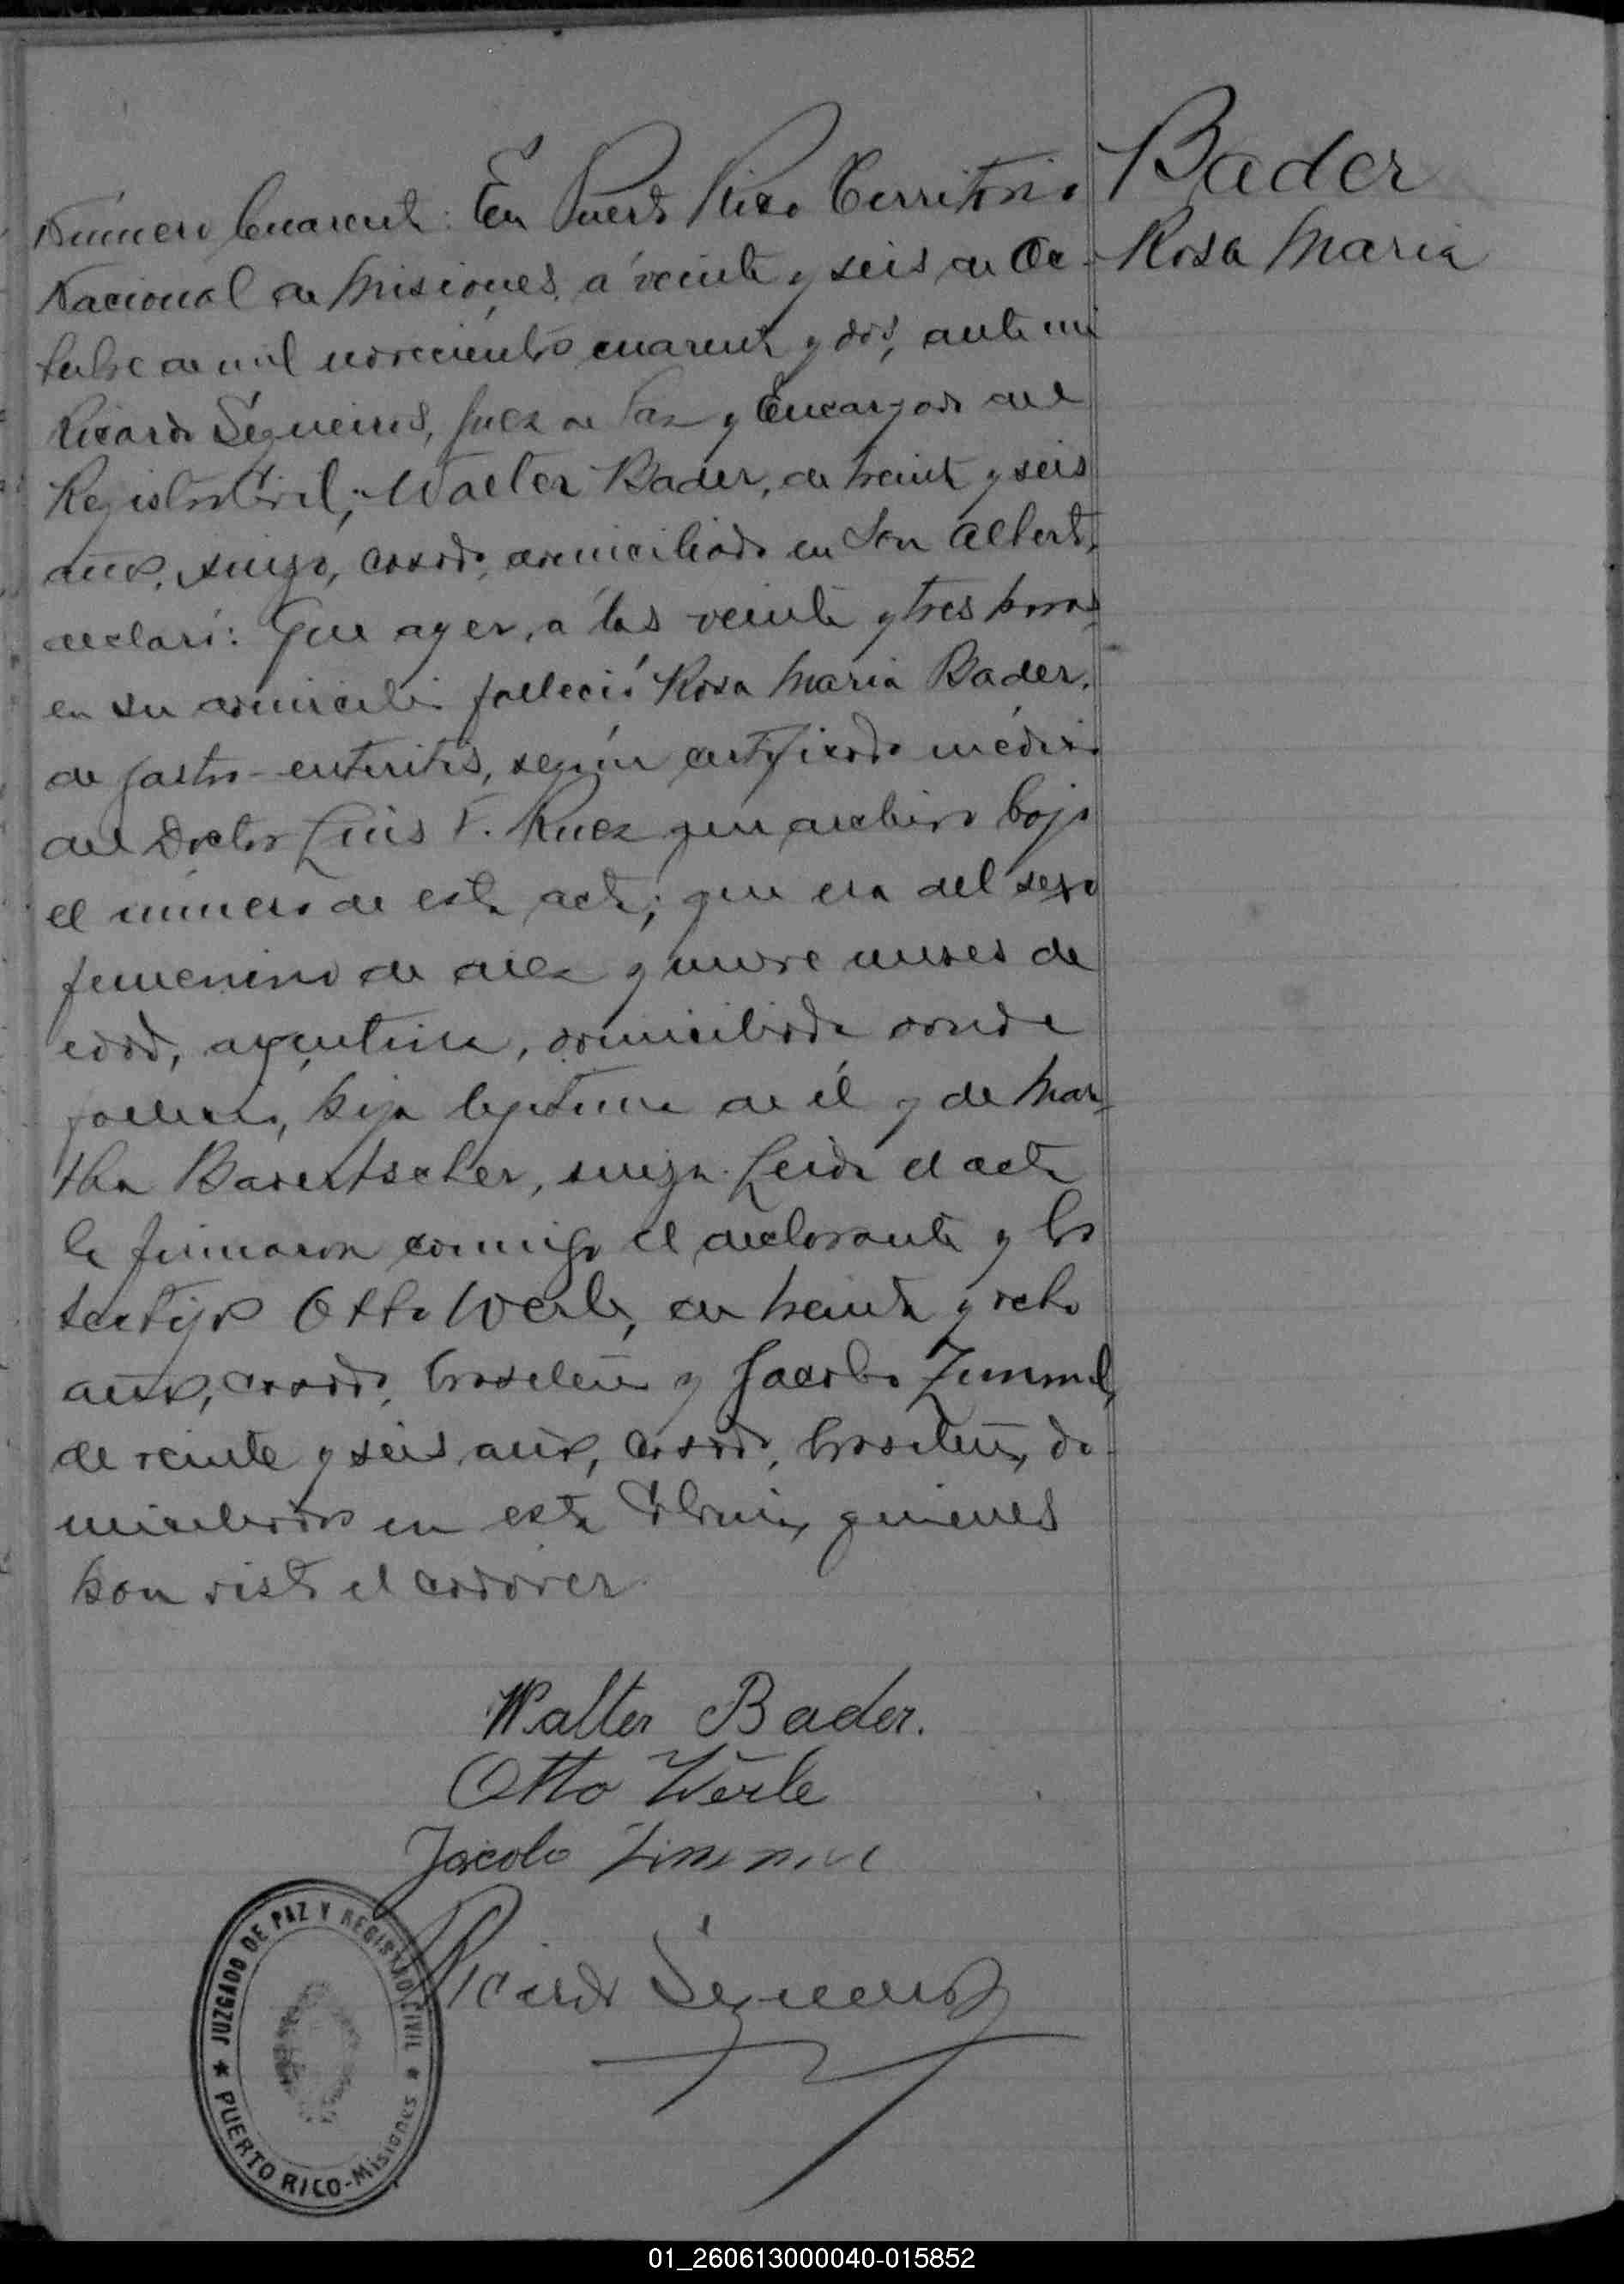 Bader
Rosa Maria
Número Cuarenta: En Puerto Rico Territorio
Nacional de Misiones, a veinte y seis de Oc-
tubre de mil novecientos cuarenta y dos, ante mi
Ricardo Sequeiros, Juez de Paz y Encargado del
Registro Civil; Walter Bader, de treinta y seis
años, suizo, casado, domiciliado en San Alberto,
declaró: Que ayer, a las veinte y tres horas
en su domicilio falleció Rosa Maria Bader,
de gastro-enteritis, según certificado médico
del Doctor Luis F. que archivo bajo
el número de esta acta; que era del sexo
femenino de diez y nueve meses de
edad, argentina, domiciliada donde
falleció, hija legítima de él y de Mar-
tha Baertscher, suiza. Leida el acta
la firmaron conmigo el declarante y los
testigos Otto Werle, de treinta y ocho
años, casado, brasileño y Jacobo Zimmel,
de veinte y seis años, casado, brasileño, do-
miciliados en esta Colonia, quienes
han visto el cadáver.
Walter Bader.
Otto Werle
Jacobo
Ricardo Sequeiros
JUZGADO DE PAZ Y REGISTRO CIVIL
★ PUERTO RICO-Misiones ★
01_260613000040-015852